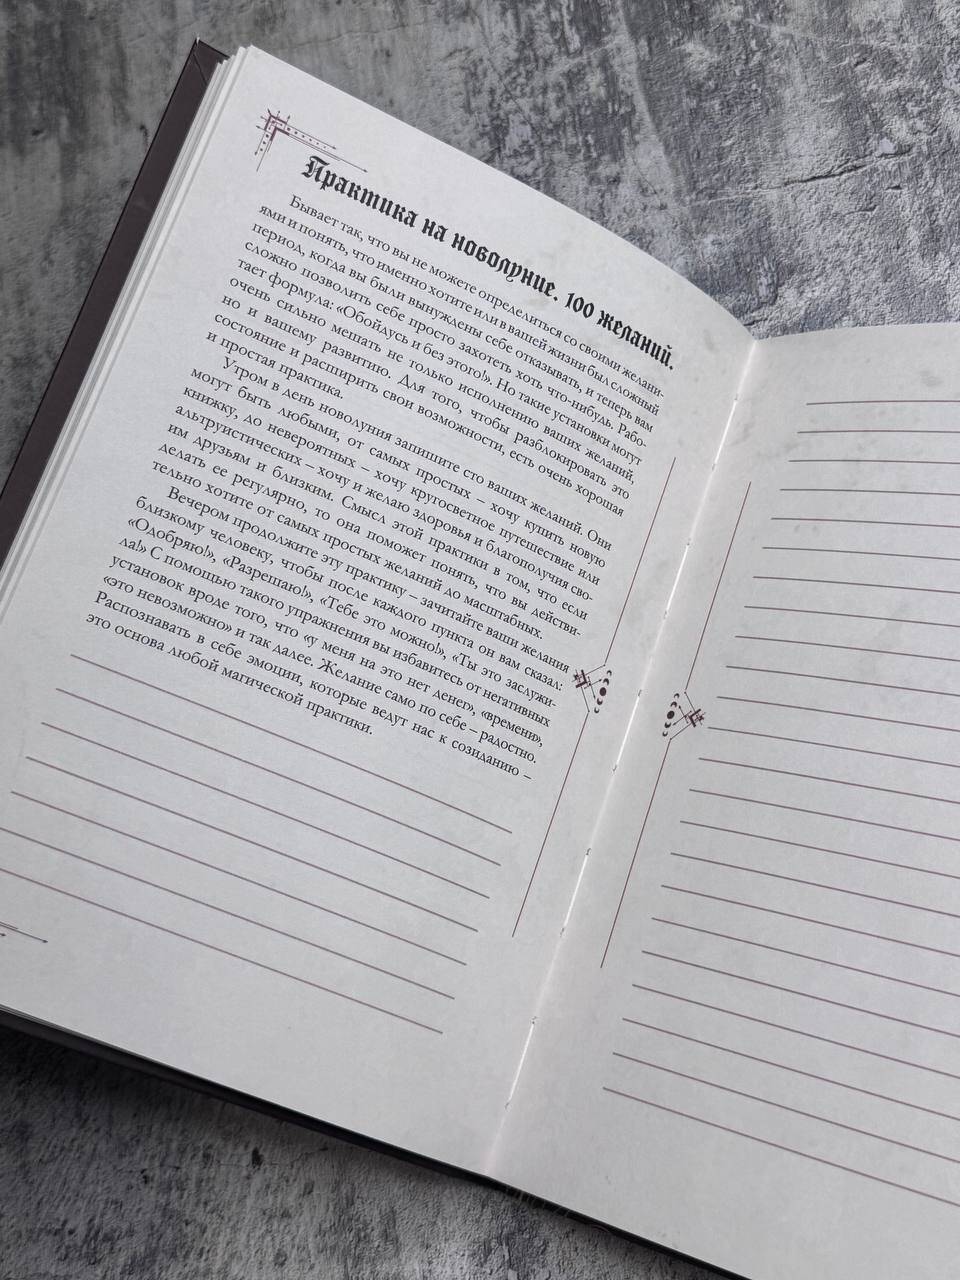 Практика на новолуние. 100 желаний.
Бывает так, что вы не можете определиться со своими желани-
ями и понять, что именно хотите или в вашей жизни был сложный
период, когда вы были вынуждены себе отказывать, и теперь вам
сложно позволить себе просто захотеть хоть что-нибудь. Рабо-
тает формула: «Обойдусь и без этого!». Но такие установки могут
очень сильно мешать не только исполнению ваших желаний,
но и вашему развитию. Для того, чтобы разблокировать это
состояние и расширить свои возможности, есть очень хорошая
и простая практика.
Утром в день новолуния запишите сто ваших желаний. Они
могут быть любыми, от самых простых – хочу купить новую
книжку, до невероятных – хочу кругосветное путешествие или
альтруистических – хочу и желаю здоровья и благополучия сво-
им друзьям и близким. Смысл этой практики в том, что если
делать ее регулярно, то она поможет понять, что вы действи-
тельно хотите от самых простых желаний до масштабных.
Вечером продолжите эту практику – зачитайте ваши желания
близкому человеку, чтобы после каждого пункта он вам сказал:
«Одобряю!», «Разрешаю!», «Тебе это можно!», «Ты это заслужи-
ла!» С помощью такого упражнения вы избавитесь от негативных
установок вроде того, что «у меня на это нет денег», «времени»,
«это невозможно» и так далее. Желание само по себе – радостно.
Распознавать в себе эмоции, которые ведут нас к созиданию –
это основа любой магической практики.